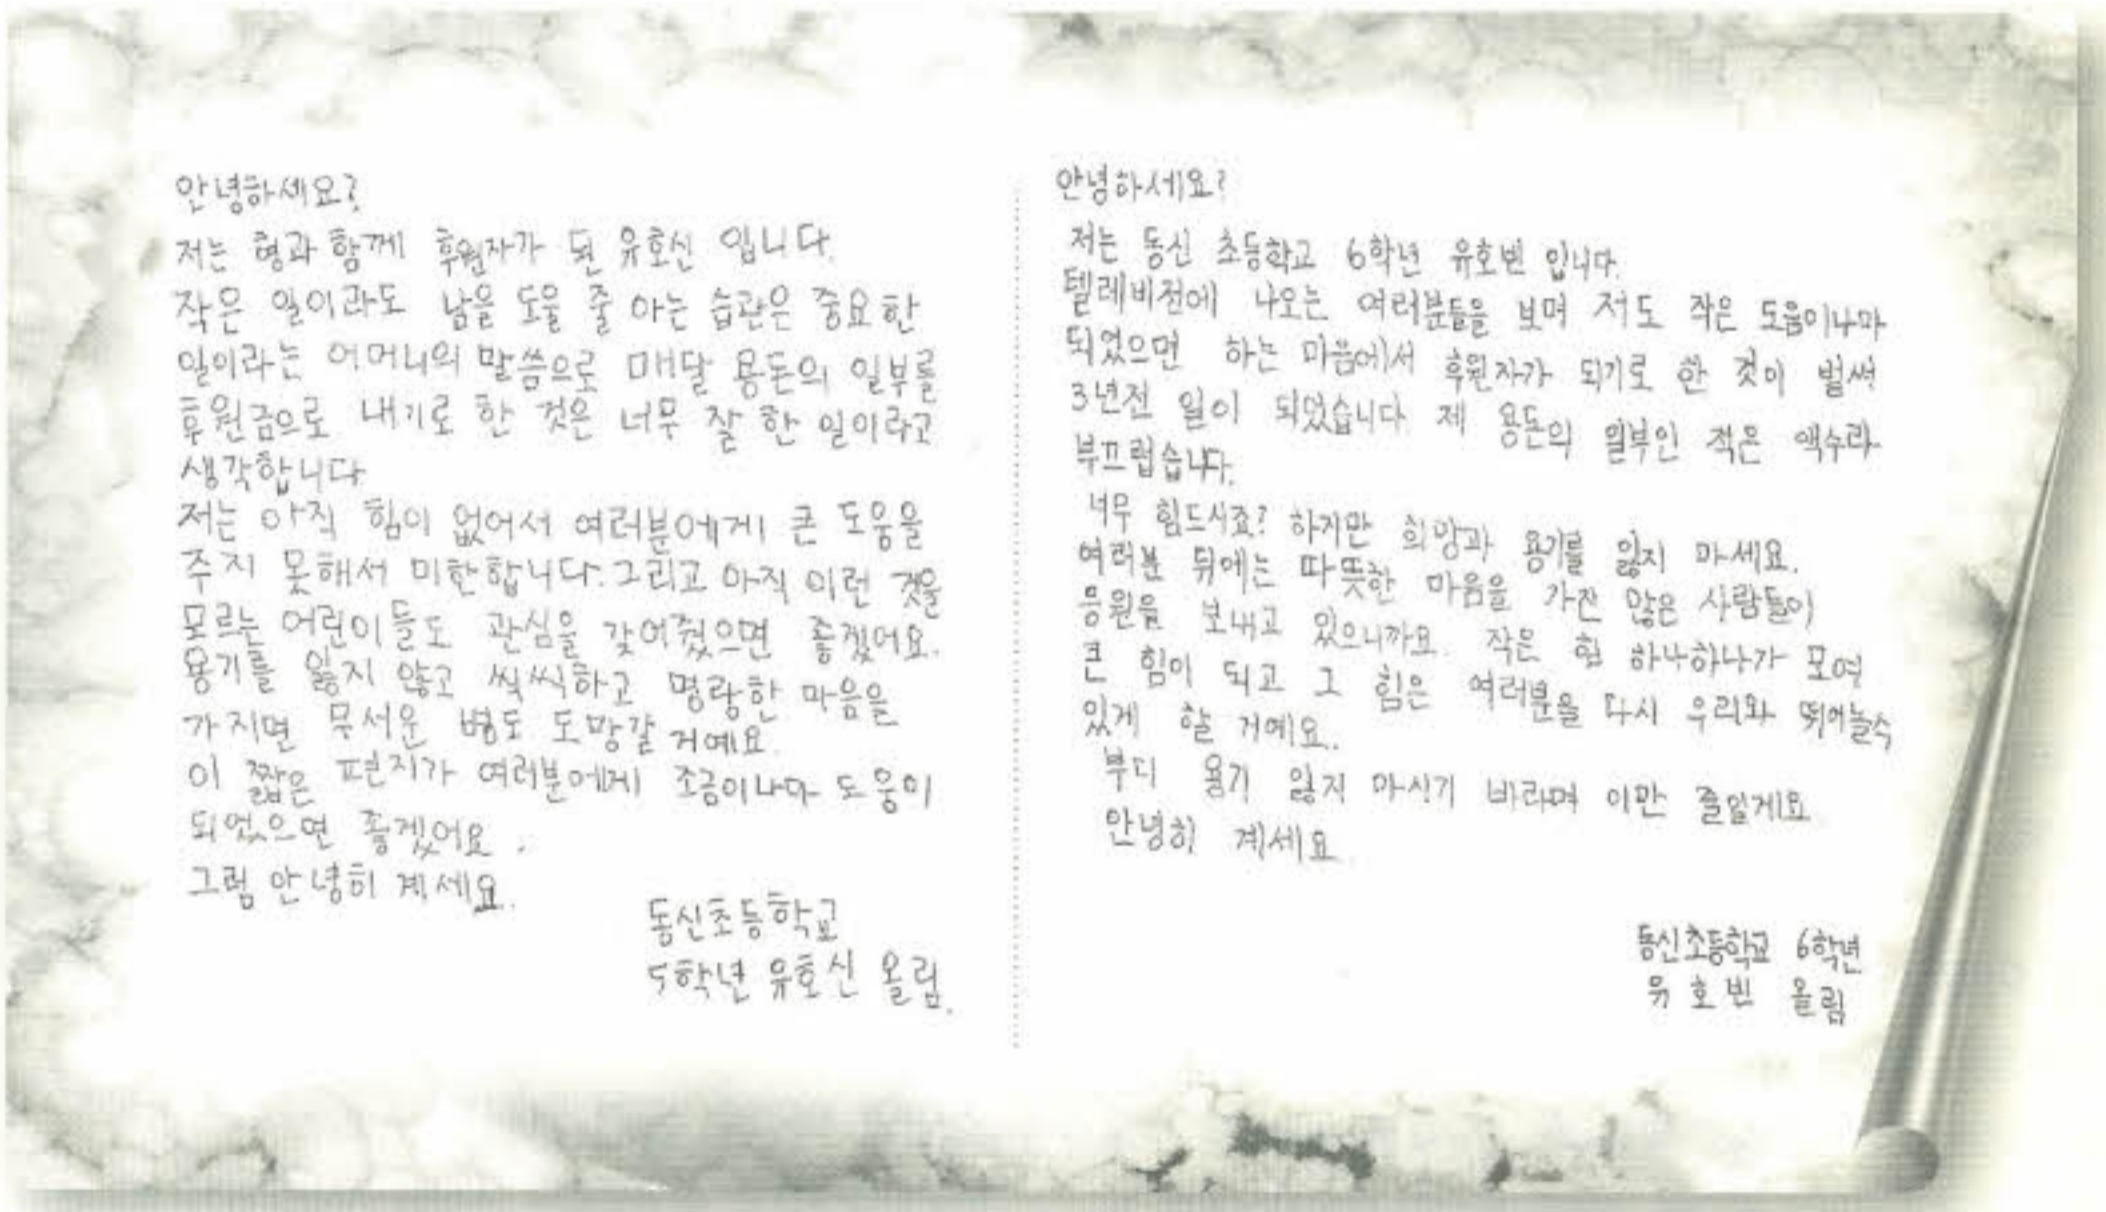 안녕하세요?
저는 형과 함께 후원자가 된 유호신 입니다.
작은 일이라도 남을 도울 줄 아는 습관은 중요한
일이라는 어머니의 말씀으로 매달 용돈의 일부를
후원금으로 내기로 한 것은 너무 잘 한 일이라고
생각합니다
저는 아직 힘이 없어서 여러분에게 큰 도움을
주지 못해서 미안합니다. 그리고 아직 이런 것을
모르는 어린이들도 관심을 갖여줬으면 좋겠어요.
용기를 잃지 않고 씩씩하고 명랑한 마음을
가지면 무서운 병도 도망갈 거예요.
이 짧은 편지가 여러분에게 조금이나마 도움이
되었으면 좋겠어요.
그럼 안녕히 계세요.
동신초등학교
5학년 유호신 올림.
안녕하세요?
저는 동신 초등학교 6학년 유호빈 입니다.
텔레비전에 나오는 여러분들을 보며 저도 작은 도움이나마
되었으면 하는 마음에서 후원자가 되기로 한 것이 벌써
3년전 일이 되었습니다. 제 용돈의 일부인 적은 액수라
부끄럽습니다.
너무 힘드시죠? 하지만 희망과 용기를 잃지 마세요.
여러분 뒤에는 따뜻한 마음을 가진 많은 사람들이
응원을 보내고 있으니까요. 작은 힘 하나하나가 모여
큰 힘이 되고 그 힘은 여러분을 다시 우리와 뛰어놀수
있게 할 거예요.
부디 용기 잃지 마시기 바라며 이만 줄일게요
안녕히 계세요
동신초등학교 6학년
유호빈 올림